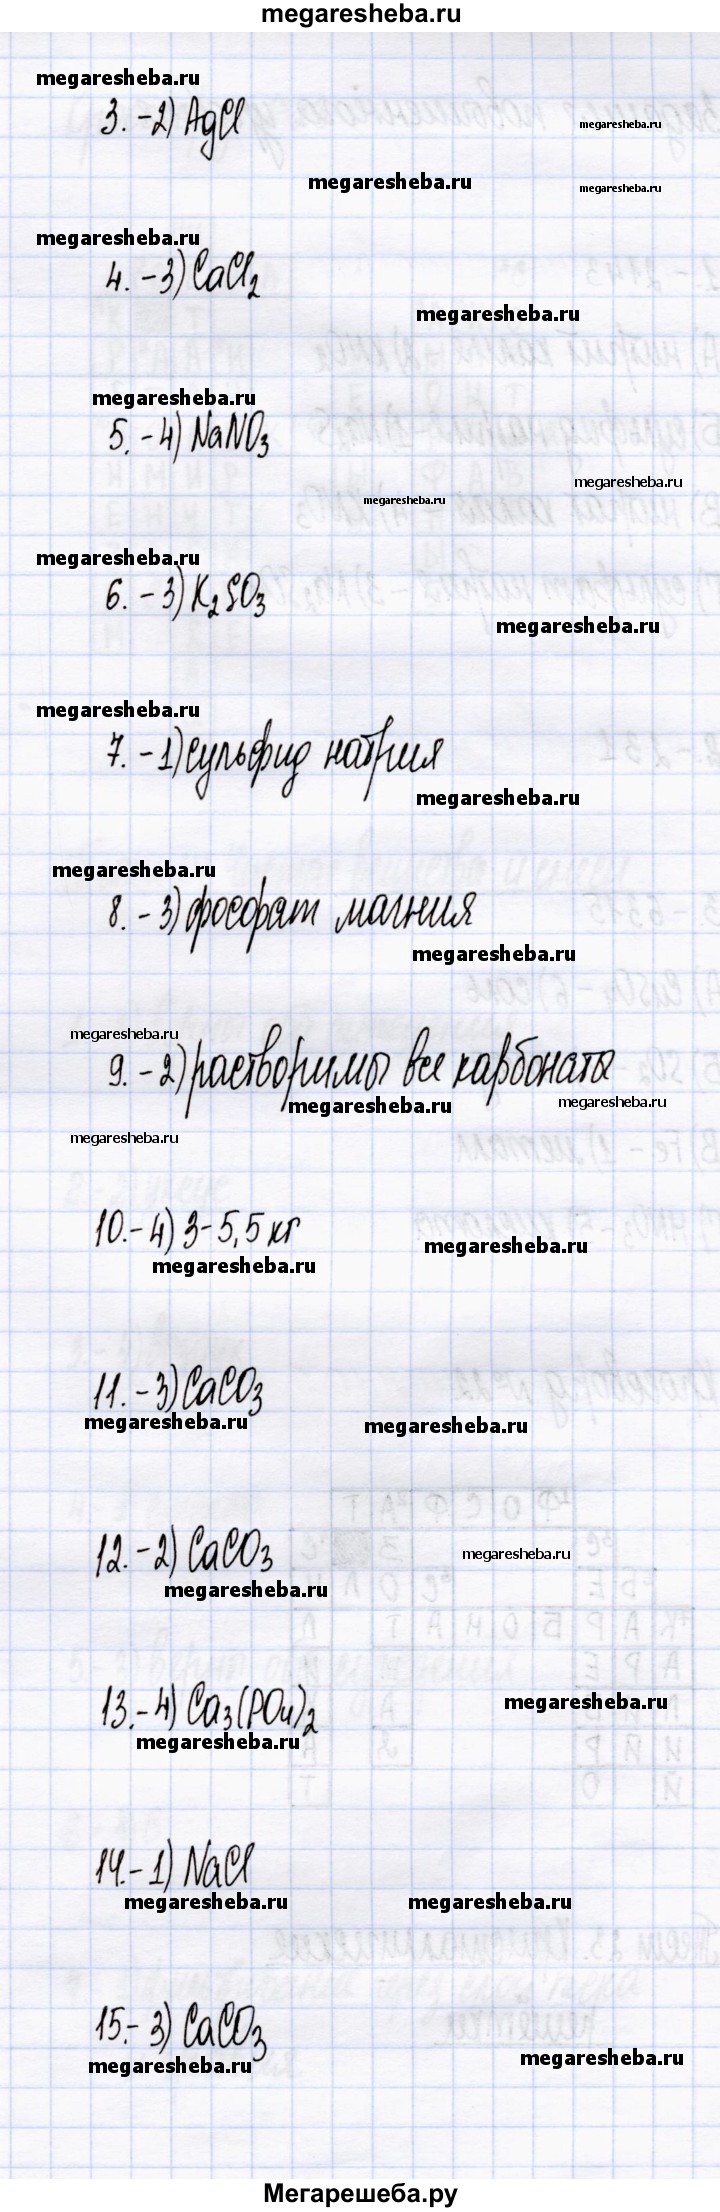 megaresheba.ru
megaresheba.ru
3. -2) AgCl
megaresheba.ru
megaresheba.ru
megaresheba.ru
megaresheba.ru
4. -3) CaCl2
megaresheba.ru
megaresheba.ru
5. -4) NaNO3
megaresheba.ru
megaresheba.ru
megaresheba.ru
6. -3) K2SO3
megaresheba.ru
megaresheba.ru
7. -1) сульфид натрия
megaresheba.ru
megaresheba.ru
8. -3) фосфат магния
megaresheba.ru
megaresheba.ru
9. -2) растворимы все карбонаты
megaresheba.ru
megaresheba.ru
megaresheba.ru
10. -4) 3-5,5 кг
megaresheba.ru
megaresheba.ru
11. -3) CaCO3
megaresheba.ru
megaresheba.ru
12. -2) CaCO3
megaresheba.ru
megaresheba.ru
13. -4) Ca3(PO4)2
megaresheba.ru
megaresheba.ru
14. -1) NaCl
megaresheba.ru
megaresheba.ru
15. -3) CaCO3
megaresheba.ru
megaresheba.ru
Мегарешеба.ру